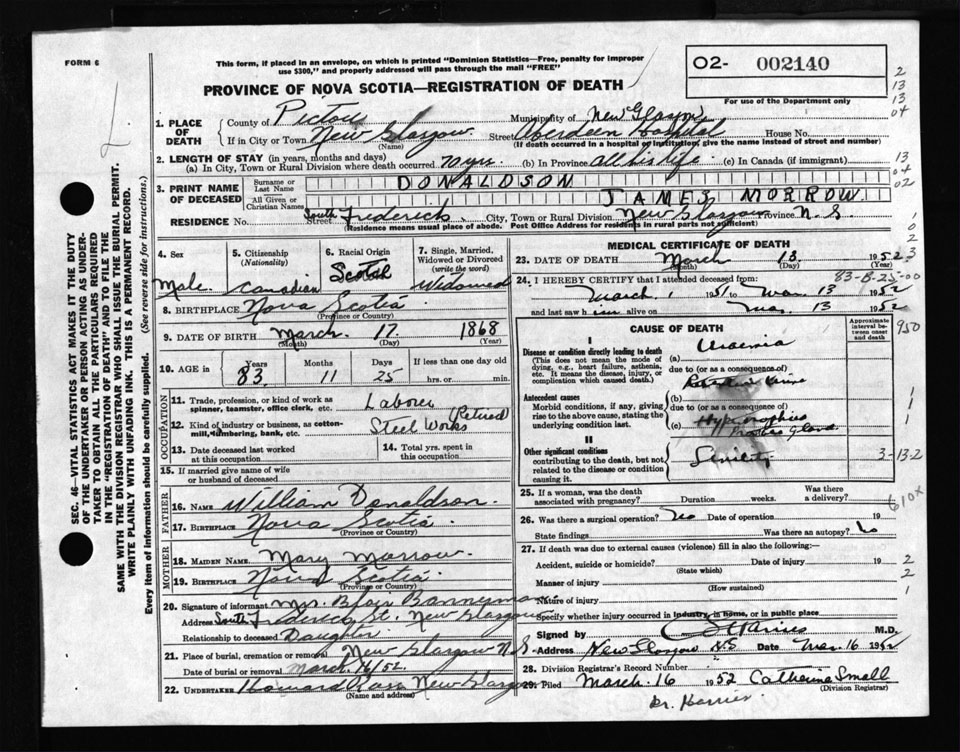 FORM 6
This form, if placed in an envelope, on which is printed "Dominion Statistics—Free, penalty for improper
use $300," and properly addressed will pass through the mail "FREE"
O2- 002140
For use of the Department only
PROVINCE OF NOVA SCOTIA—REGISTRATION OF DEATH
1. PLACE OF DEATH
County of Pictou Municipality of New Glasgow
If in City or Town New Glasgow (Name) Street Aberdeen Hospital House No.
(If death occurred in a hospital or institution, give the name instead of street and number)
2. LENGTH OF STAY (in years, months and days)
(a) In City, Town or Rural Division where death occurred 70 yrs. (b) In Province all his life. (c) In Canada (if immigrant)
3. PRINT NAME OF DECEASED
Surname or Last Name DONALDSON
All Given or Christian Names JAMES MORROW
RESIDENCE No. Street South Frederick City, Town or Rural Division New Glasgow Province N.S.
(Residence means usual place of abode. Post Office Address for residents in rural parts not sufficient)
4. Sex Male
5. Citizenship (Nationality) Canadian
6. Racial Origin Scotch
7. Single, Married, Widowed or Divorced (write the word) Widowed
8. BIRTHPLACE Nova Scotia
(Province or Country)
9. DATE OF BIRTH March 17 1868
(Month) (Day) (Year)
10. AGE in Years 83 Months 11 Days 25 If less than one day old hrs. or min.
OCCUPATION
11. Trade, profession, or kind of work as spinner, teamster, office clerk, etc. Laborer (Retired)
12. Kind of industry or business, as cotton-mill, lumbering, bank, etc. Steel Works
13. Date deceased last worked at this occupation
14. Total yrs. spent in this occupation
15. If married give name of wife or husband of deceased
FATHER
16. NAME William Donaldson
17. BIRTHPLACE Nova Scotia
(Province or Country)
MOTHER
18. MAIDEN NAME Mary Morrow
19. BIRTHPLACE Nova Scotia
(Province or Country)
20. Signature of informant Mrs. Blair Bannerman
Address South Frederick St. New Glasgow
Relationship to deceased Daughter
21. Place of burial, cremation or removal New Glasgow N.S
Date of burial or removal March 16/52
22. UNDERTAKER Howard Ross New Glasgow
(Name and address)
MEDICAL CERTIFICATE OF DEATH
23. DATE OF DEATH March 13 1952
(Month) (Day) (Year)
24. I HEREBY CERTIFY that I attended deceased from:
83-B-25-00
March 1 1951 to Mar. 13 1952
and last saw him alive on Mar. 13 1952
CAUSE OF DEATH
Approximate interval between onset and death
I
Disease or condition directly leading to death
(This does not mean the mode of dying, e.g., heart failure, asthenia, etc. It means the disease, injury, or complication which caused death.)
(a) Uraemia
due to (or as a consequence of)
Antecedent causes
Morbid conditions, if any, giving rise to the above cause, stating the underlying condition last.
(b)
due to (or as a consequence of)
(c)
II
Other significant conditions
contributing to the death, but not related to the disease or condition causing it.
Senility
25. If a woman, was the death associated with pregnancy? Duration weeks. Was there a delivery?
26. Was there a surgical operation? No Date of operation 19
State findings Was there an autopsy? No
27. If death was due to external causes (violence) fill in also the following:—
Accident, suicide or homicide? Date of injury 19
(State which)
Manner of injury
(How sustained)
Nature of injury
Specify whether injury occurred in industry, in home, or in public place
Signed by M.D.
Address New Glasgow N.S Date Mar. 16 1952
28. Division Registrar's Record Number
29. Filed March 16 1952 Catherine Small
(Division Registrar)
Dr. Harries
SEC. 46—VITAL STATISTICS ACT MAKES IT THE DUTY
OF THE UNDERTAKER OR PERSON ACTING AS UNDERTAKER TO OBTAIN ALL THE PARTICULARS REQUIRED
IN THE "REGISTRATION OF DEATH" AND TO FILE THE
SAME WITH THE DIVISION REGISTRAR WHO SHALL ISSUE THE BURIAL PERMIT.
WRITE PLAINLY WITH UNFADING INK. THIS IS A PERMANENT RECORD.
Every item of information should be carefully supplied. (See reverse side for instructions.)